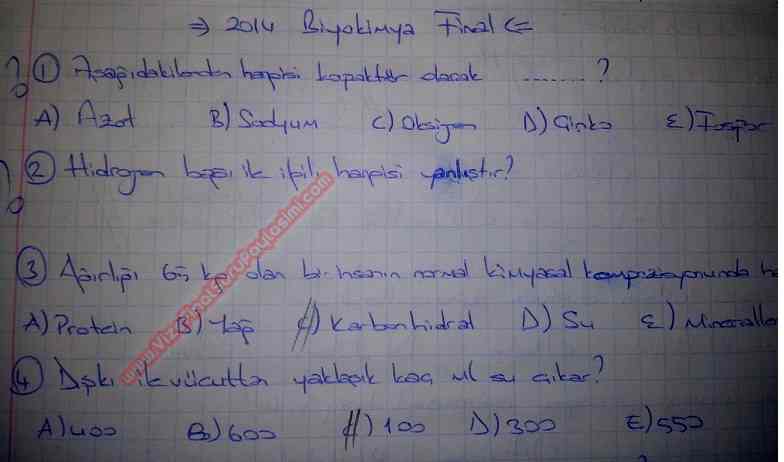 ⇒ 2014 Biyokimya Final ⇐
? ① Aşağıdakilerden hangisi kofaktör olacak ........ ?
A) Azot B) Sodyum C) Oksijen D) Çinko E) Fosfor
? ② Hidrojen bağı ile ilgili hangisi yanlıştır?
③ Ağırlığı 65 kg olan bir insanın normal kimyasal kompozisyonunda
A) Protein B) Yağ C) Karbonhidrat D) Su E) Mineraller
④ Dışkı ile vücuttan yaklaşık kaç ml su çıkar?
A) 400 B) 600 C) 100 D) 300 E) 550
www.VizeFinalSoruPaylasimi.com